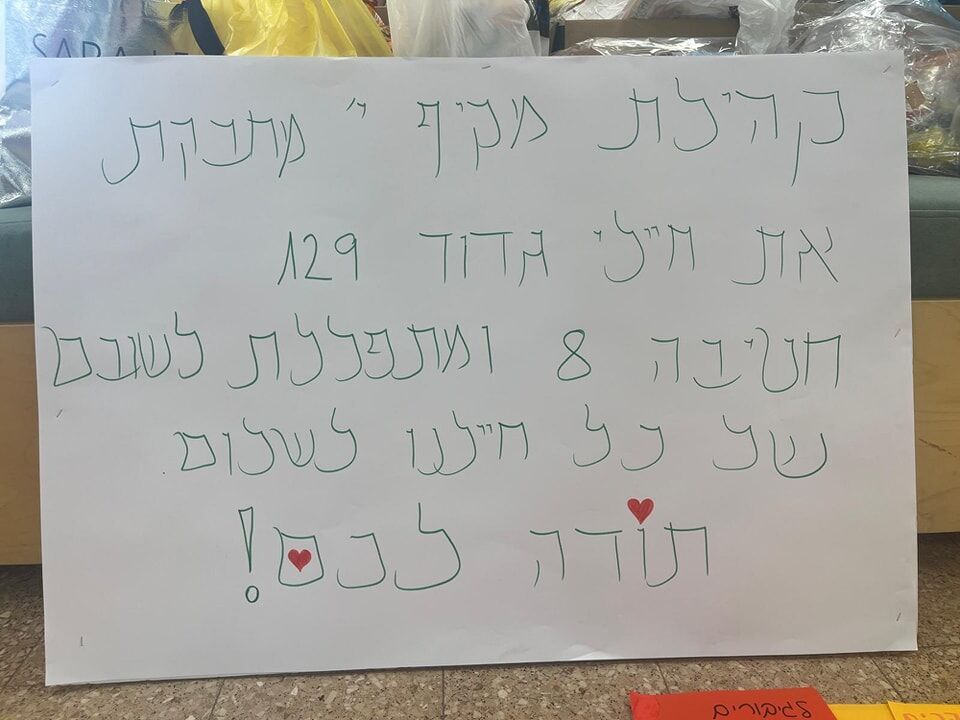 קהילת מקיף י' מחבקת
את חיילי גדוד 129
חטיבה 8 ומתפללת לשובם
של כל חיילנו לשלום.
תודה לכם!
לגיבורים